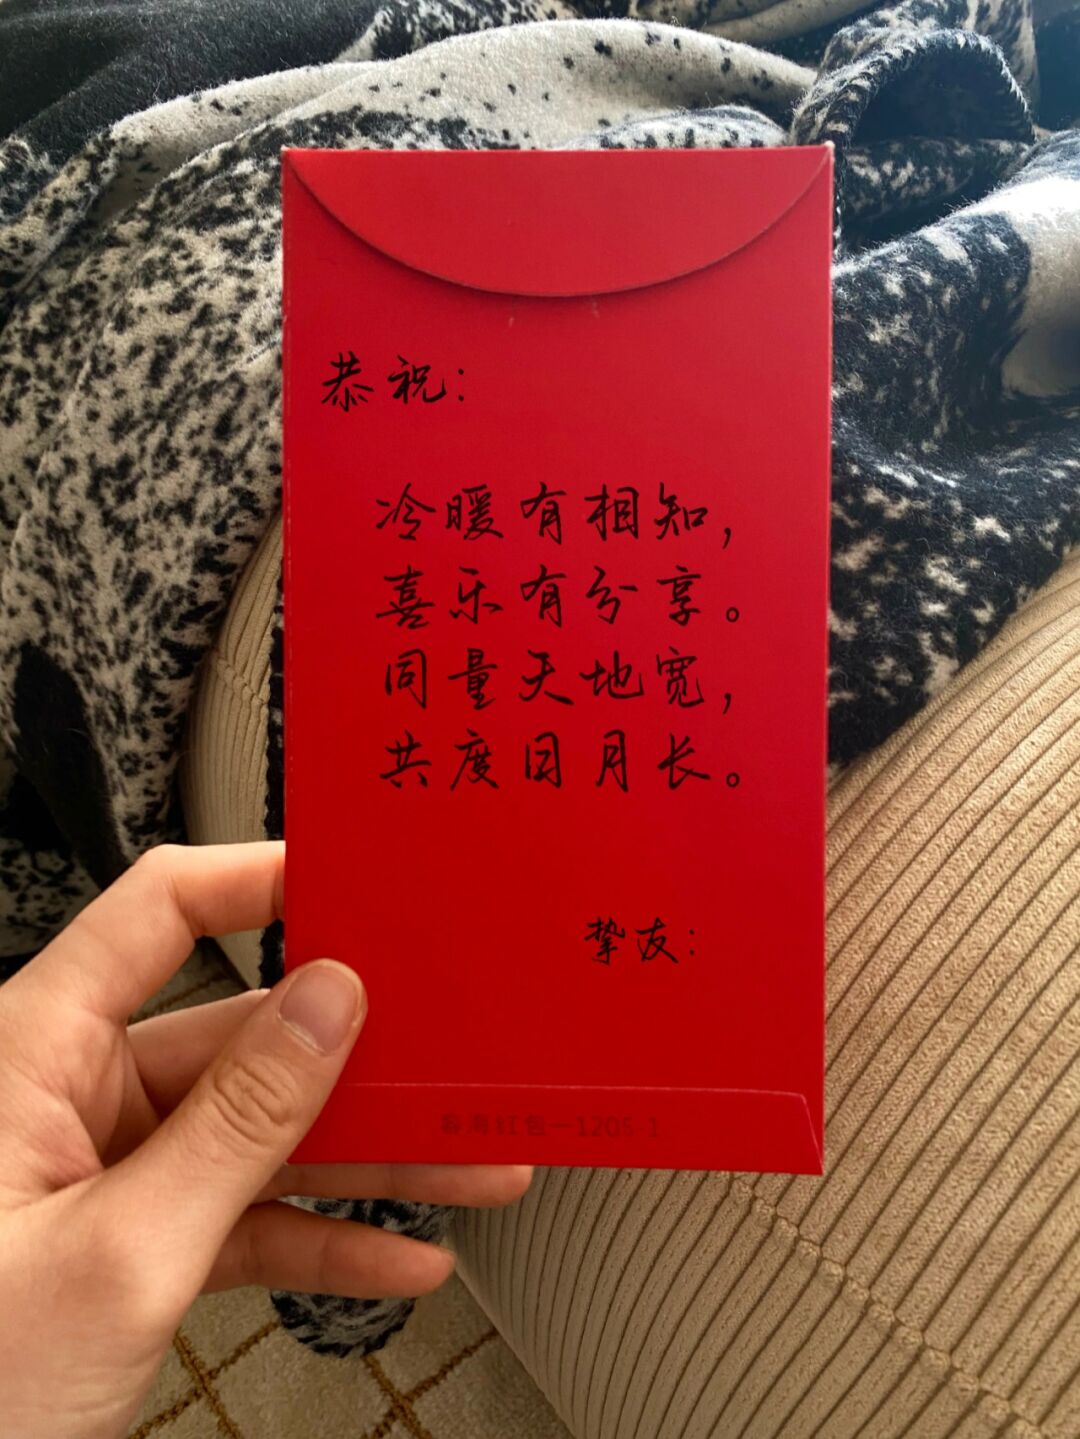 恭祝：
冷暖有相知，
喜乐有分享。
同量天地宽，
共度日月长。
挚友：
红包—1205-1